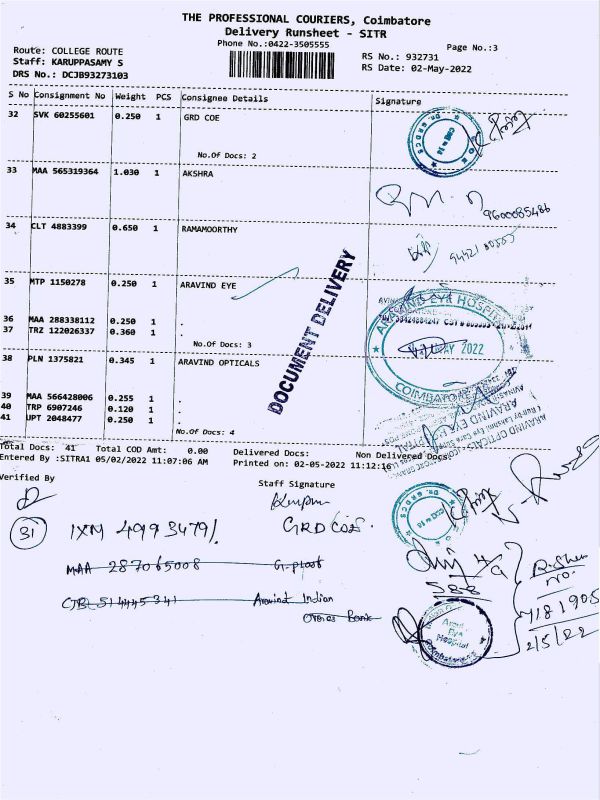 THE PROFESSIONAL COURIERS, Coimbatore
Delivery Runsheet - SITR
Phone No.:0422-3505555
Page No.:3
Route: COLLEGE ROUTE
Staff: KARUPPASAMY S
DRS No.: DCJB93273103
RS No.: 932731
RS Date: 02-May-2022
S No Consignment No Weight PCS Consignee Details Signature
32 SVK 60255601 0.250 1 GRD COE
No.Of Docs: 2
33 MAA 565319364 1.030 1 AKSHRA
9600085486
34 CLT 4883399 0.650 1 RAMAMOORTHY
DOCUMENT DELIVERY
35 MTP 1150278 0.250 1 ARAVIND EYE
36 MAA 288338112 0.250 1 .
37 TRZ 122026337 0.360 1 .
No.Of Docs: 3
ARAVIND EYE HOSPITAL
MAY 2022
COIMBATORE
38 PLN 1375821 0.345 1 ARAVIND OPTICALS
39 MAA 566428006 0.255 1 .
40 TRP 6907246 0.120 1 .
41 UPT 2048477 0.250 1 .
No.Of Docs: 4
Total Docs: 41 Total COD Amt: 0.00 Delivered Docs: Non Delivered Docs:
Entered By :SITRA1 05/02/2022 11:07:06 AM Printed on: 02-05-2022 11:12:16
Verified By
Staff Signature
31 IXM 4993479/. GRD COE.
MAA 287065008 G.
CJB 514445341 Aravind Indian
Bank
588
Eye
Hospital
2/5/22